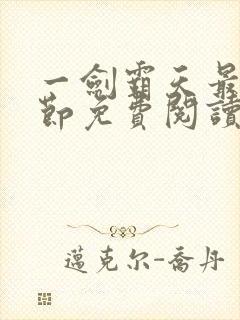 一劍霸天最
節免費閱讀
邁克尔-喬丹